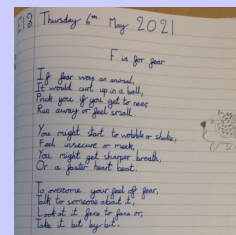 Thursday 6th May 2021
F is for fear
If fear was an animal,
It would curl up in a ball,
Prick you if you get to near,
Run away or feel small.
You might start to wobble or shake,
Feel insecure or meek,
You might get sharper breath,
Or a faster heart beat.
To overcome your feel of fear,
Talk to someone about it,
Look at it face to face or,
Take it bit by bit.